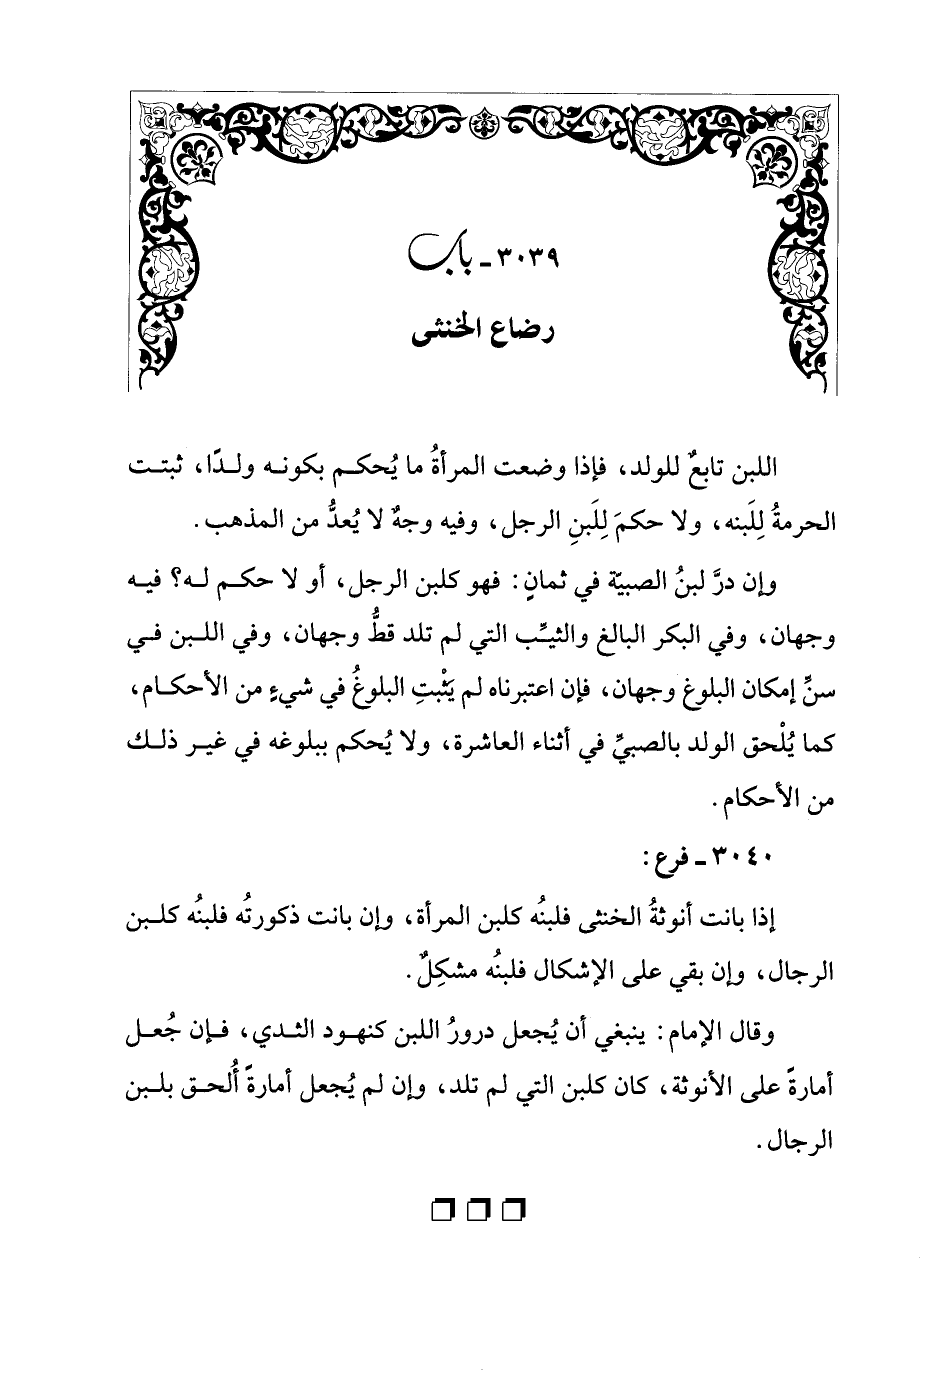 ٣٠٣٩ - باب
رضاع الخنثى
اللبن تابعٌ للولد، فإذا وضعت المرأةُ ما يُحكم بكونه ولدًا، ثبتت
الحرمةُ لِلَبنه، ولا حكمَ لِلَبنِ الرجل، وفيه وجهٌ لا يُعدُّ من المذهب.
وإن درَّ لبنُ الصبيّة في ثمانٍ: فهو كلبن الرجل، أو لا حكم له؟ فيه
وجهان، وفي البكر البالغ والثيِّب التي لم تلد قطُّ وجهان، وفي اللبن في
سنِّ إمكان البلوغ وجهان، فإن اعتبرناه لم يَثْبتِ البلوغُ في شيءٍ من الأحكام،
كما يُلْحق الولد بالصبيِّ في أثناء العاشرة، ولا يُحكم ببلوغه في غير ذلك
من الأحكام.
٣٠٤٠ - فرع:
إذا بانت أنوثةُ الخنثى فلبنُه كلبن المرأة، وإن بانت ذكورتُه فلبنُه كلبن
الرجال، وإن بقي على الإشكال فلبنُه مشكِلٌ.
وقال الإمام: ينبغي أن يُجعل درورُ اللبن كنهود الثدي، فإن جُعل
أمارةً على الأنوثة، كان كلبن التي لم تلد، وإن لم يُجعل أمارةً أُلحق بلبن
الرجال.